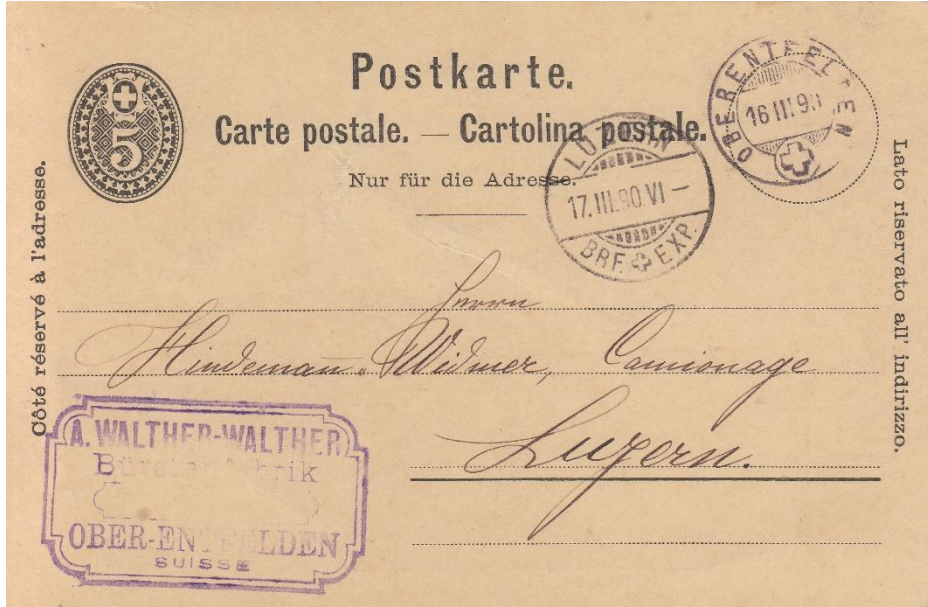 Postkarte.
Carte postale. — Cartolina postale.
Nur für die Adresse.
5
OBERENTFELDEN
16 III 90
LUZERN
17. III. 90. VI –
BRF. EXP.
Côté réservé à l'adresse.
Lato riservato all' indirizzo.
Herrn
Hindemann-Widmer, Camionage
Luzern.
A. WALTHER-WALTHER
Bürstenfabrik
OBER-ENTFELDEN
SUISSE